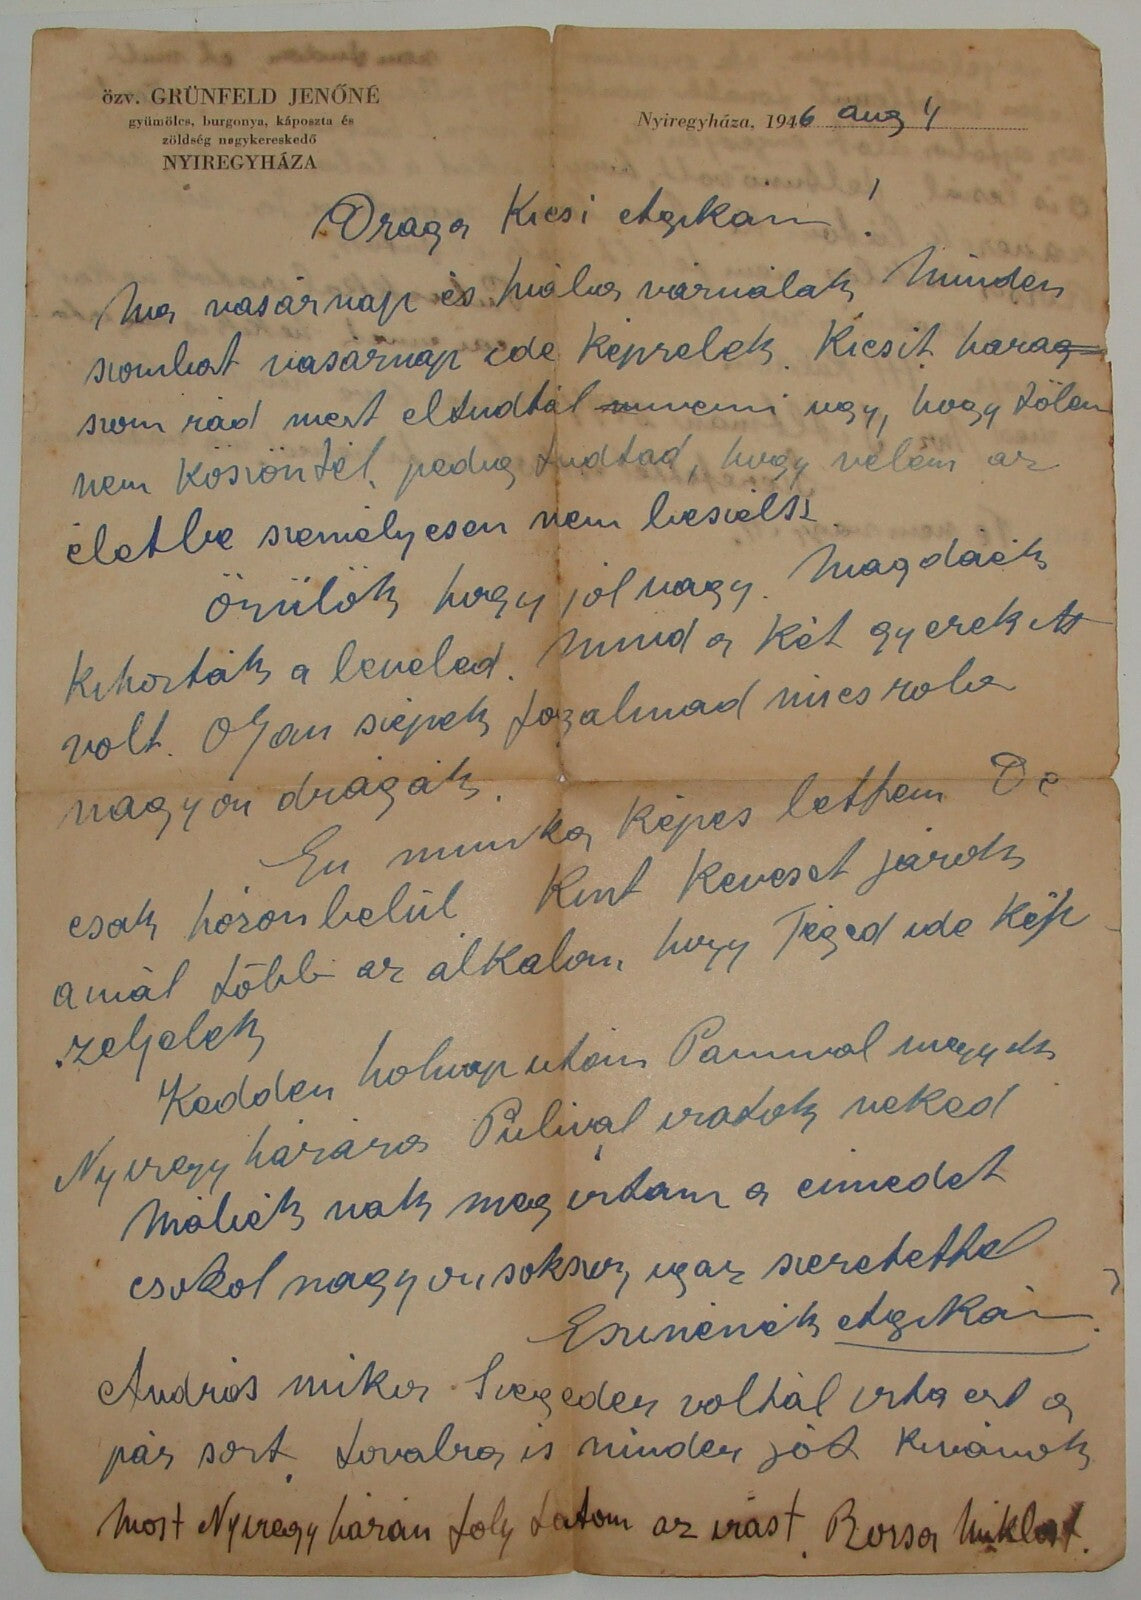 özv. GRÜNFELD JENŐNÉ
gyümölcs, burgonya, káposzta és
zöldség nagykereskedő
NYIREGYHÁZA
Nyiregyháza, 1946 aug 4
Draga Kicsi Agikam!
Ma vasárnap és hiába várnálak Minden
szombat vasárnap ide képzelek. Kicsit harag
szom rád mert eltudtál menni ugy, hogy tölem
nem köszöntél, pedig tudtad, hogy velem az
életbe személyesen nem beszélsz
Örülök hogy jól vagy. Magdáék
kihozták a leveled. Mind a két gyerek itt
volt. Ojan szépek fogalmad nincs rola
nagyon drágák.
En munka képes lettem De
csak házon belül Kint keveset járok
annál több az alkalom, hogy Téged ide kép
zeljelek
Kedden holnap után Pammal megyek
Nyiregyházára Pulival iratok neked
Máliék nak meg irtam a cimedet
csokol nagyon sokszor, igaz szeretettel
Eszinénék Agikám
András mikor Szegeden voltál irta ezt a
pár sort. Tovabra is minden jót kivánok
Most Nyiregyházán foly tatom az irást. Borsa Miklost.